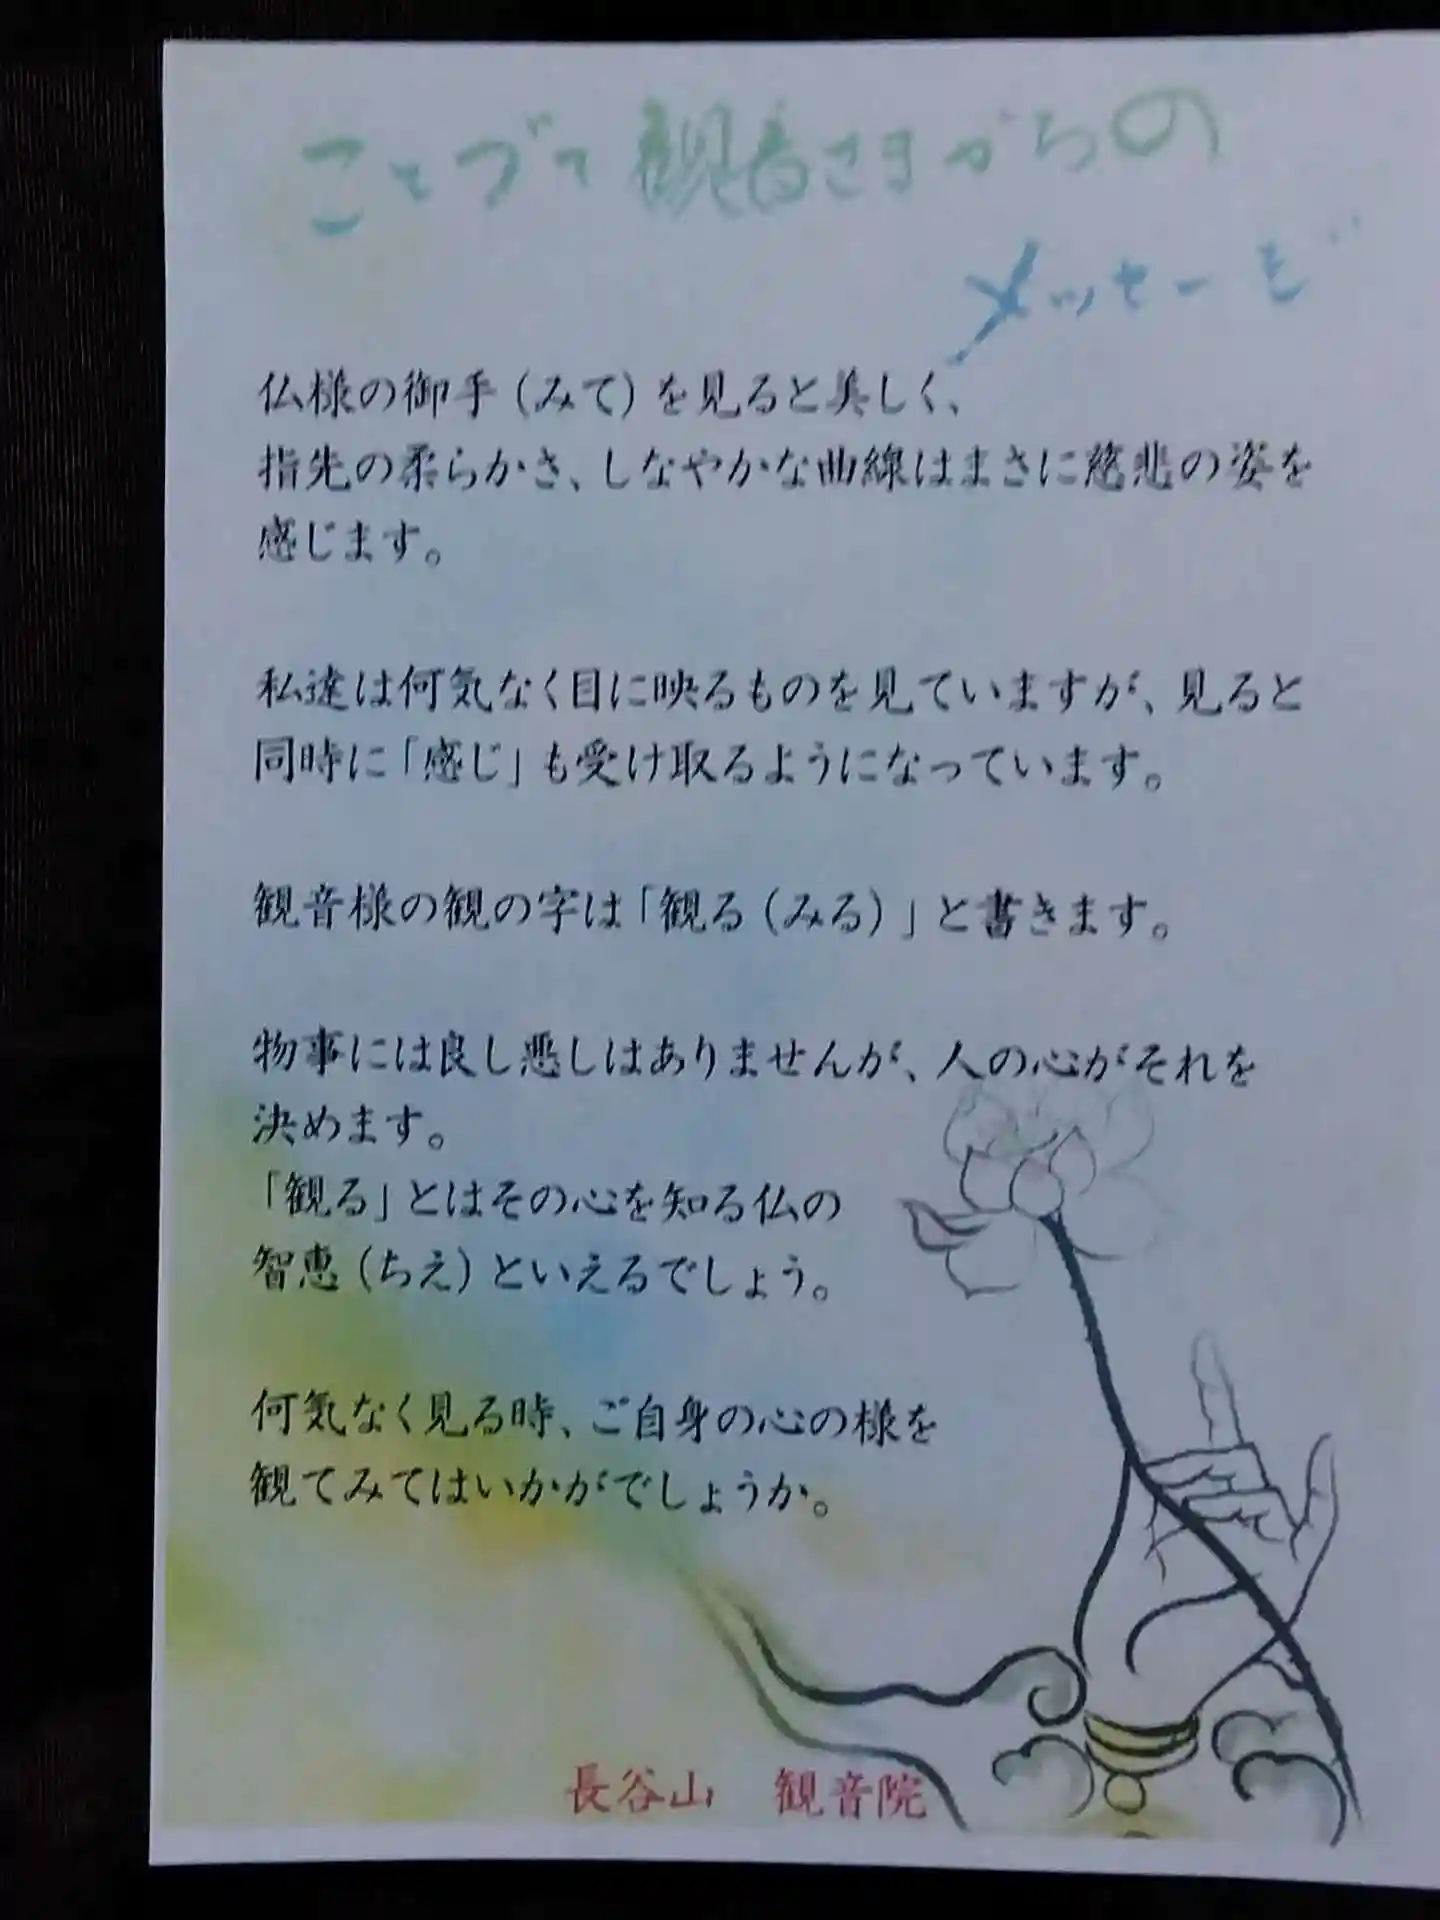 ことづて観音さまからの
メッセージ
仏様の御手（みて）を見ると美しく、
指先の柔らかさ、しなやかな曲線はまさに慈悲の姿を
感じます。
私達は何気なく目に映るものを見ていますが、見ると
同時に「感じ」も受け取るようになっています。
観音様の観の字は「観る（みる）」と書きます。
物事には良し悪しはありませんが、人の心がそれを
決めます。
「観る」とはその心を知る仏の
智恵（ちえ）といえるでしょう。
何気なく見る時、ご自身の心の様を
観てみてはいかがでしょうか。
長谷山　観音院